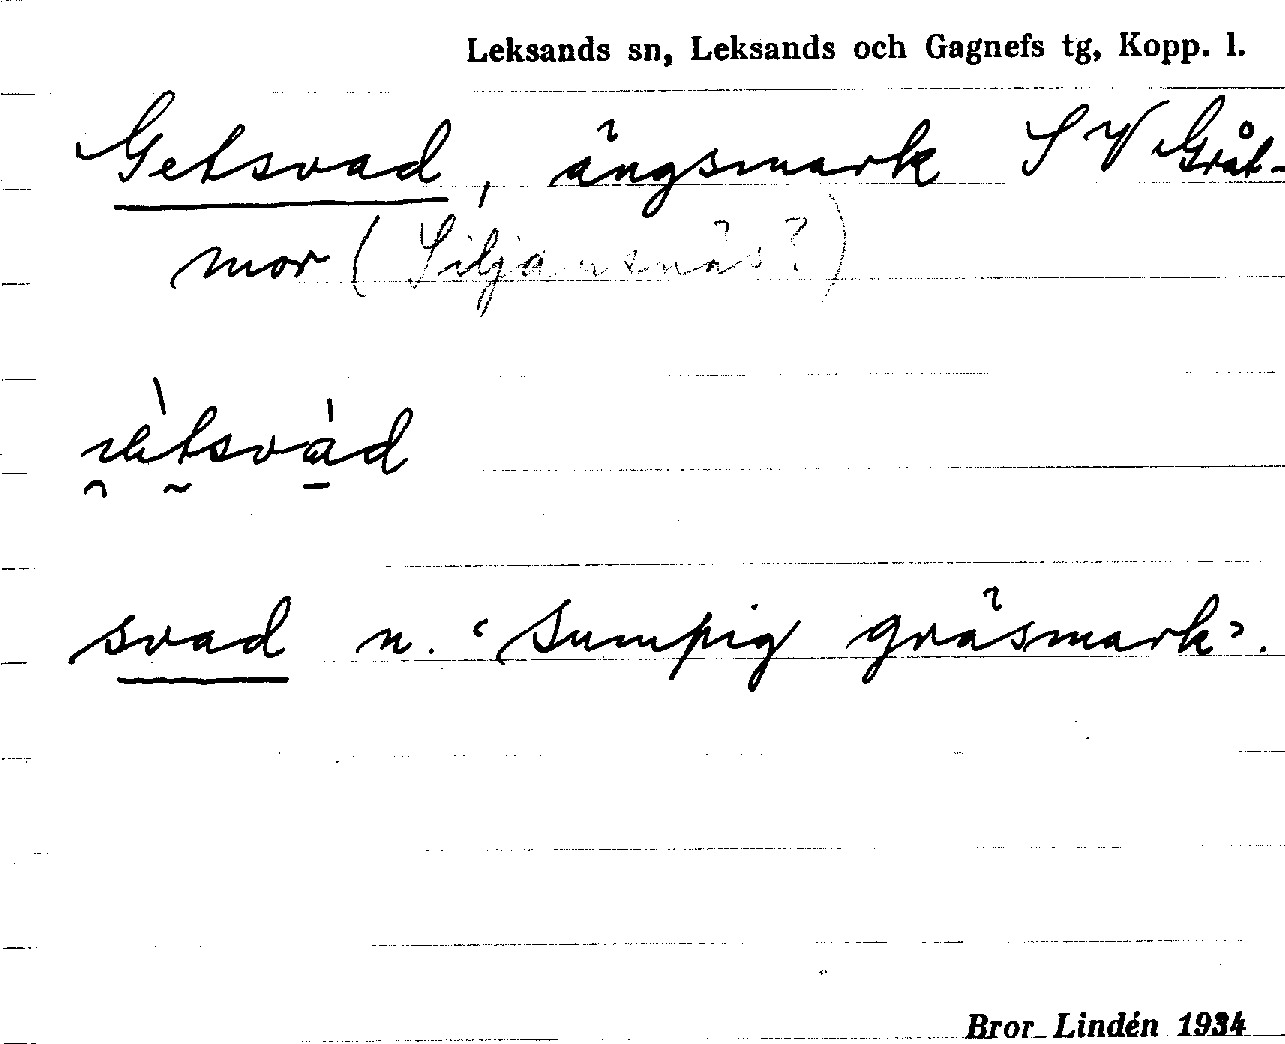 Leksands sn, Leksands och Gagnefs tg, Kopp. l.
Getsvad, ängsmark SV Gråt-
mor (Siljansnäs?)
svad n. ‘sumpig gräsmark’.
Bror Lindén 1934